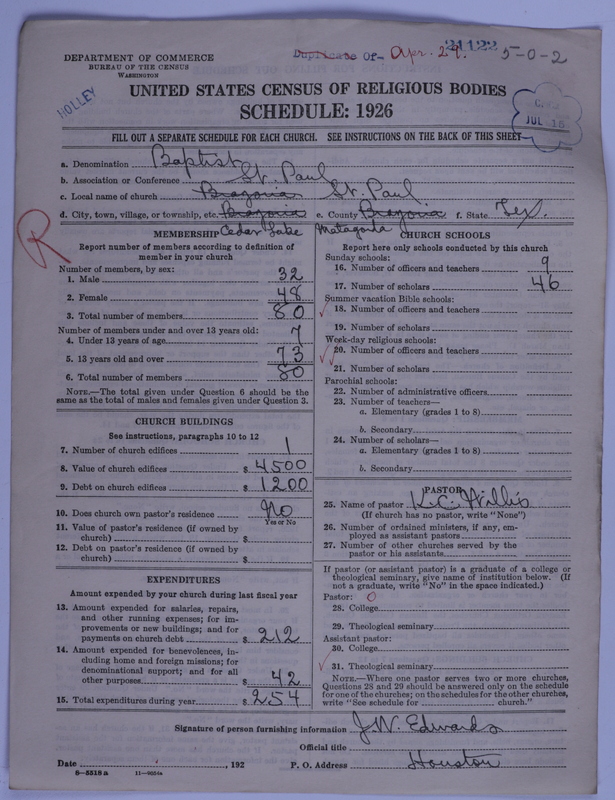 DEPARTMENT OF COMMERCE
BUREAU OF THE CENSUS
WASHINGTON
Duplicate Of- Apr. 29.
21122
5-0-2
HOLLEY
UNITED STATES CENSUS OF RELIGIOUS BODIES
SCHEDULE: 1926
JUL 16
FILL OUT A SEPARATE SCHEDULE FOR EACH CHURCH. SEE INSTRUCTIONS ON THE BACK OF THIS SHEET
a. Denomination Baptist
b. Association or Conference St. Paul
c. Local name of church Brazoria St. Paul
d. City, town, village, or township, etc. Brazoria e. County Brazoria f. State Tex.
Cedar Lake Matagorda
R
MEMBERSHIP
Report number of members according to definition of
member in your church
Number of members, by sex:
1. Male 32
2. Female 48
3. Total number of members 80
Number of members under and over 13 years old:
4. Under 13 years of age 7
5. 13 years old and over 73
6. Total number of members 80
NOTE.—The total given under Question 6 should be the
same as the total of males and females given under Question 3.
CHURCH BUILDINGS
See instructions, paragraphs 10 to 12
7. Number of church edifices 1
8. Value of church edifices $ 4500
9. Debt on church edifices $ 1200
10. Does church own pastor's residence No
Yes or No
11. Value of pastor's residence (if owned by
church) $
12. Debt on pastor's residence (if owned by
church) $
EXPENDITURES
Amount expended by your church during last fiscal year
13. Amount expended for salaries, repairs,
and other running expenses; for im-
provements or new buildings; and for
payments on church debt $ 212
14. Amount expended for benevolences, in-
cluding home and foreign missions; for
denominational support; and for all
other purposes $ 42
15. Total expenditures during year $ 254
CHURCH SCHOOLS
Report here only schools conducted by this church
Sunday schools:
16. Number of officers and teachers 9
17. Number of scholars 46
Summer vacation Bible schools:
18. Number of officers and teachers
19. Number of scholars
Week-day religious schools:
20. Number of officers and teachers
21. Number of scholars
Parochial schools:
22. Number of administrative officers
23. Number of teachers—
a. Elementary (grades 1 to 8)
b. Secondary
24. Number of scholars—
a. Elementary (grades 1 to 8)
b. Secondary
PASTOR
25. Name of pastor K.C. Willis
(If church has no pastor, write "None")
26. Number of ordained ministers, if any, em-
ployed as assistant pastors
27. Number of other churches served by the
pastor or his assistants
If pastor (or assistant pastor) is a graduate of a college or
theological seminary, give name of institution below. (If
not a graduate, write "No" in the space indicated.)
Pastor: 0
28. College
29. Theological seminary
Assistant pastor:
30. College
31. Theological seminary
NOTE.—Where one pastor serves two or more churches,
Questions 28 and 29 should be answered only on the schedule
for one of the churches; on the schedules for the other churches,
write "See schedule for church."
Signature of person furnishing information J.W. Edwards
Official title
Date , 192 P. O. Address Houston
8—5518 a 11—9034a